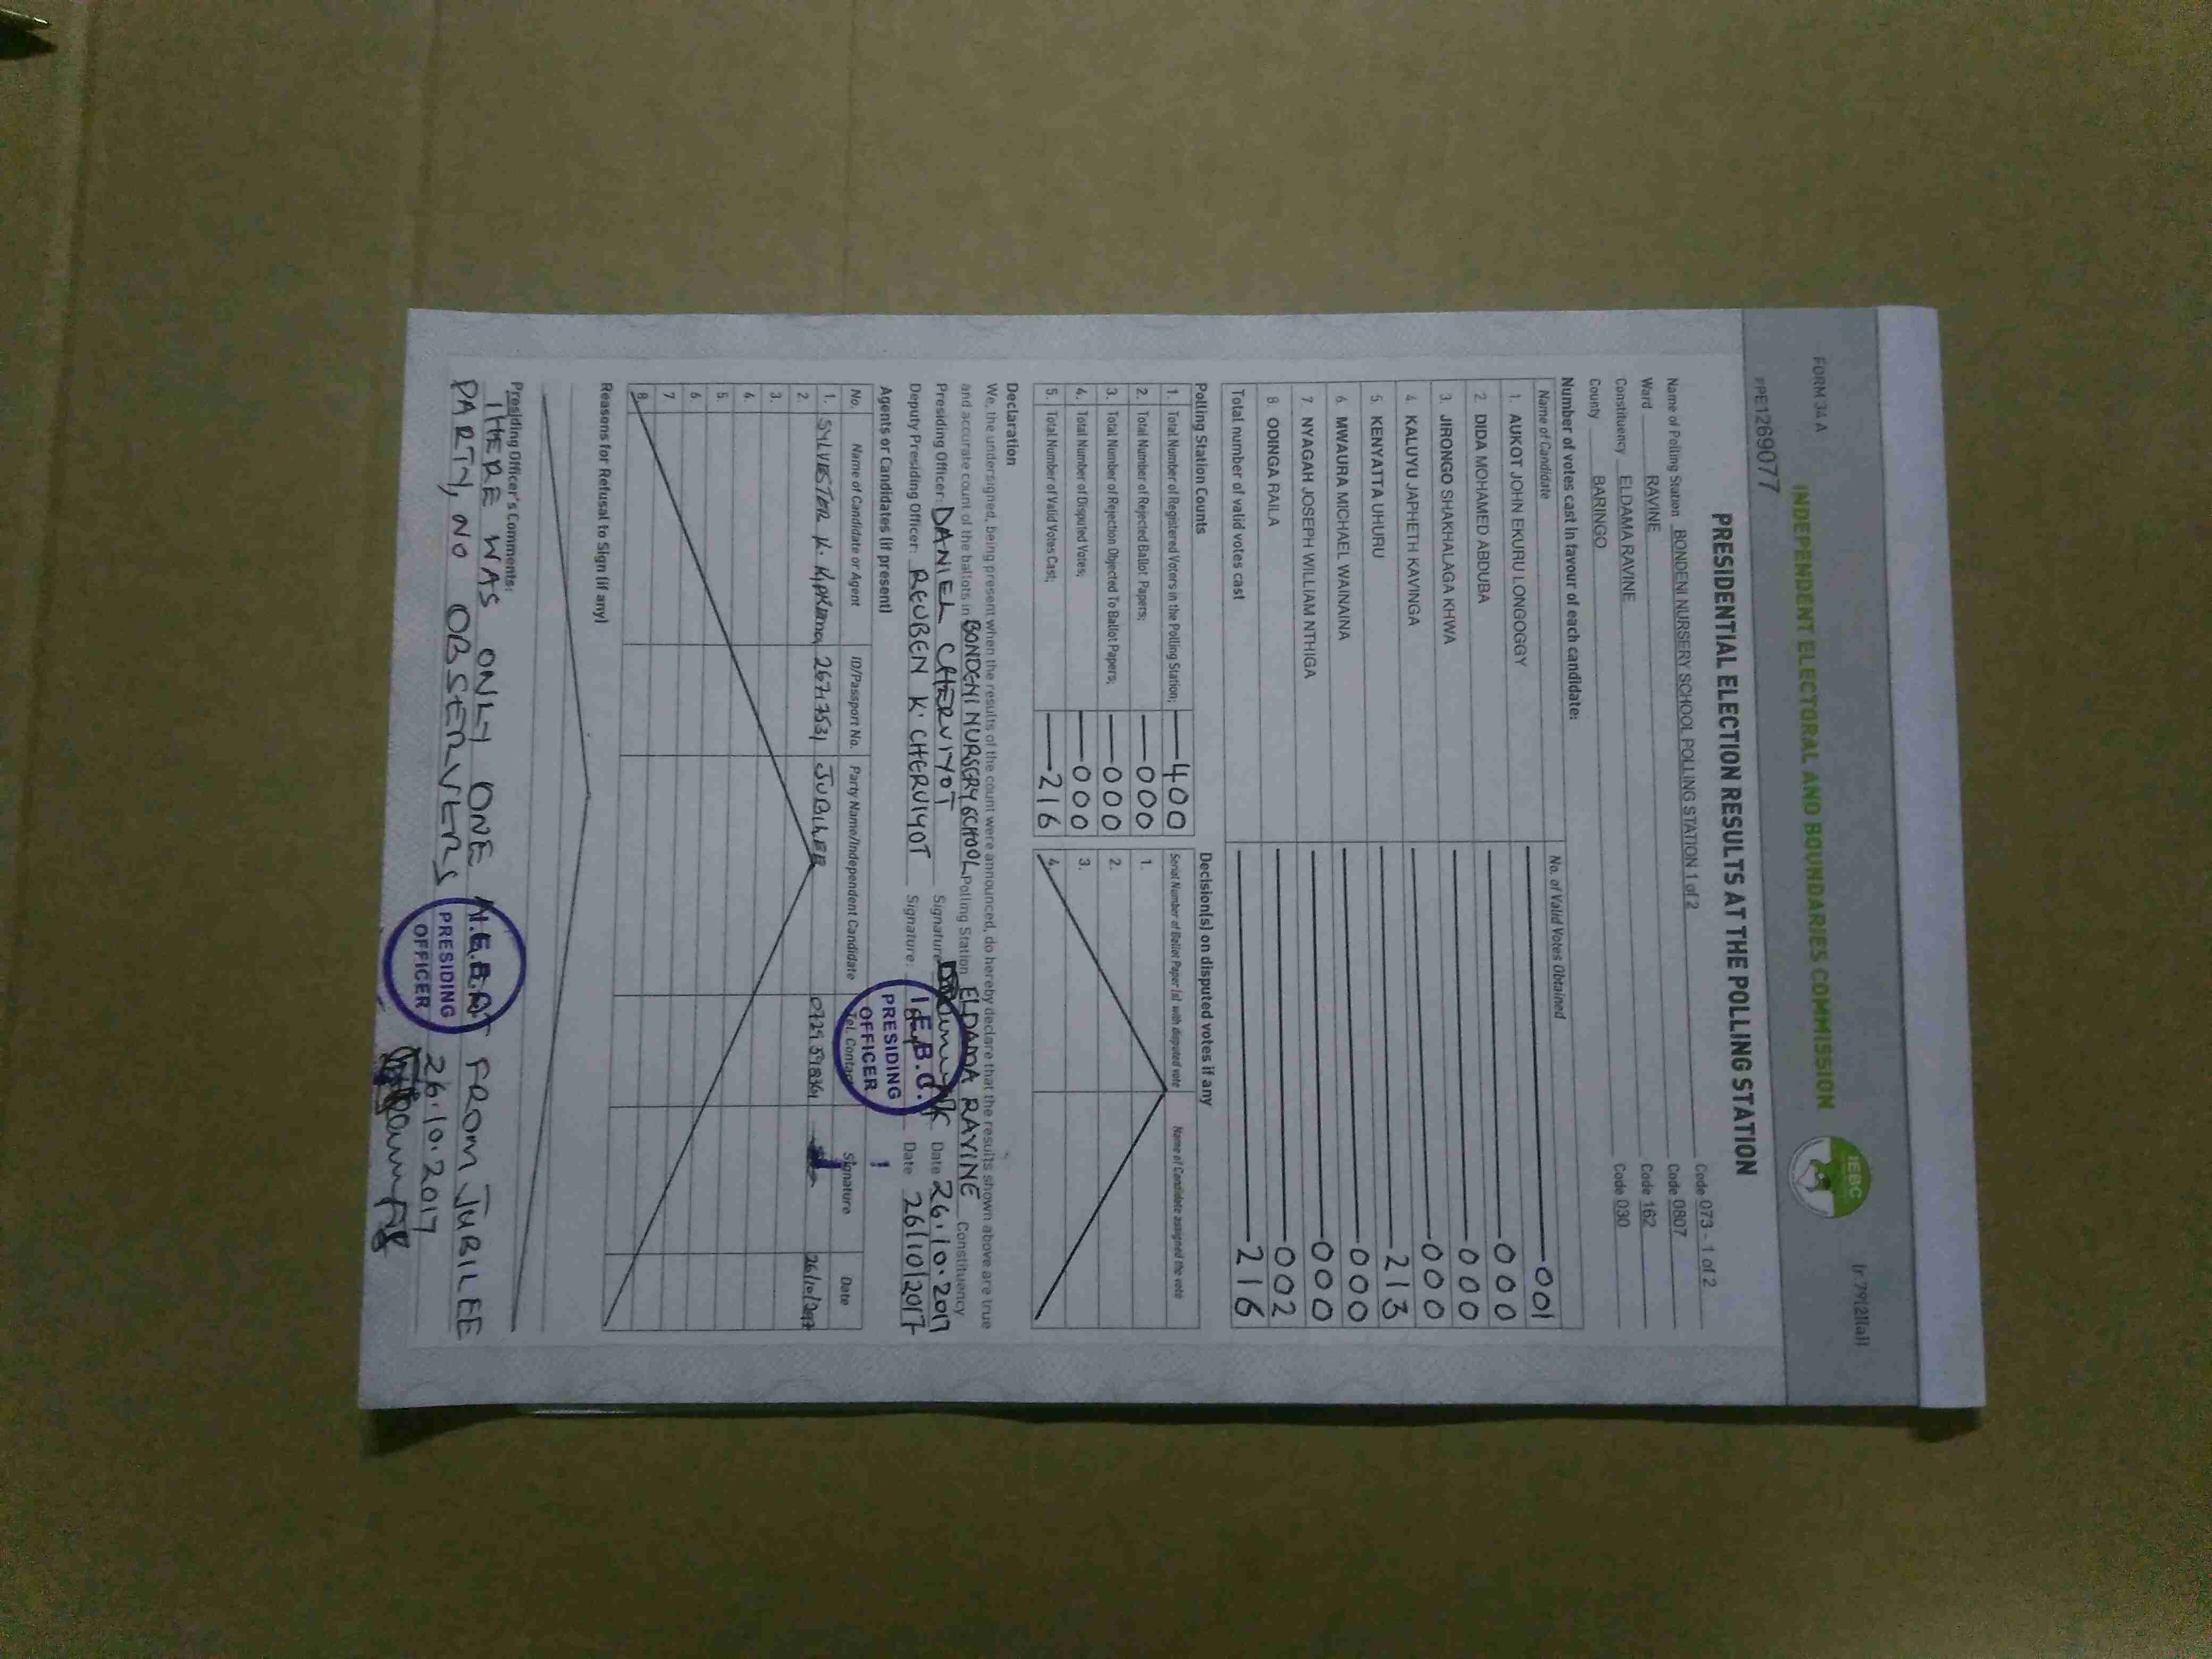 FORM 34A
INDEPENDENT ELECTORAL AND BOUNDARIES COMMISSION
IEBC
(r 79(2)(a))
PPE1269077
PRESIDENTIAL ELECTION RESULTS AT THE POLLING STATION
Name of Polling Station BONDENI NURSERY SCHOOL POLLING STATION 1 of 2 Code 073 - 1 of 2
Ward RAVINE Code 0807
Constituency ELDAMA RAVINE Code 162
County BARINGO Code 030
Number of votes cast in favour of each candidate:
Name of Candidate No. of Valid Votes Obtained
1. AUKOT JOHN EKURU LONGOGGY 001
2. DIDA MOHAMED ABDUBA 000
3. JIRONGO SHAKHALAGA KHWA 000
4. KALUYU JAPHETH KAVINGA 000
5. KENYATTA UHURU 213
6. MWAURA MICHAEL WAINAINA 000
7. NYAGAH JOSEPH WILLIAM NTHIGA 000
8. ODINGA RAILA 002
Total number of valid votes cast 216
Polling Station Counts
1. Total Number of Registered Voters in the Polling Station; 400
2. Total Number of Rejected Ballot Papers; 000
3. Total Number of Rejection Objected To Ballot Papers; 000
4. Total Number of Disputed Votes; 000
5. Total Number of Valid Votes Cast; 216
Decision(s) on disputed votes if any
Serial Number of Ballot Paper (s) with disputed vote Name of Candidate assigned the vote
1.
2.
3.
4.
Declaration
We, the undersigned, being present when the results of the count were announced, do hereby declare that the results shown above are true
and accurate count of the ballots in BONDENI NURSERY SCHOOL Polling Station ELDAMA RAVINE Constituency
Presiding Officer: DANIEL CHERUIYOT Signature Date 26.10.2017
Deputy Presiding Officer: REUBEN K. CHERUIYOT Signature: Date 26/10/2017
I.E.B.C.
PRESIDING
OFFICER
Agents or Candidates (if present)
No. Name of Candidate or Agent ID/Passport No. Party Name/Independent Candidate Tel. Contact Signature Date
1. SYLVESTER K. 26717531 JUBILEE 26/10/2017
2.
3.
4.
5.
6.
7.
8.
Reasons for Refusal to Sign (if any)
Presiding Officer's Comments:
THERE WAS ONLY ONE FROM JUBILEE
PARTY, NO OBSERVERS 26.10.2017
PRESIDING
OFFICER